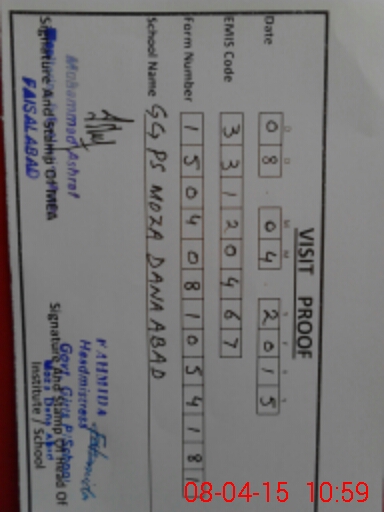 VISIT PROOF
Date 08 04 2015
EMIS Code 33120467
Form Number 150408105418
School Name GGPS MOZA DANAABAD
Mohammad Ashraf
Signature And Stamp Of MEA
FAISALABAD
FAHMIDA
Headmistress
Govt. Girls P/School
Moza Dana Abad
Signature And Stamp Of Head Of
Institute / School
08-04-15 10:59